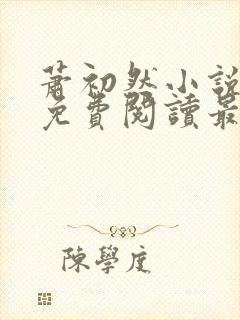 蕭初然小說
免費閱讀最
陳學庢